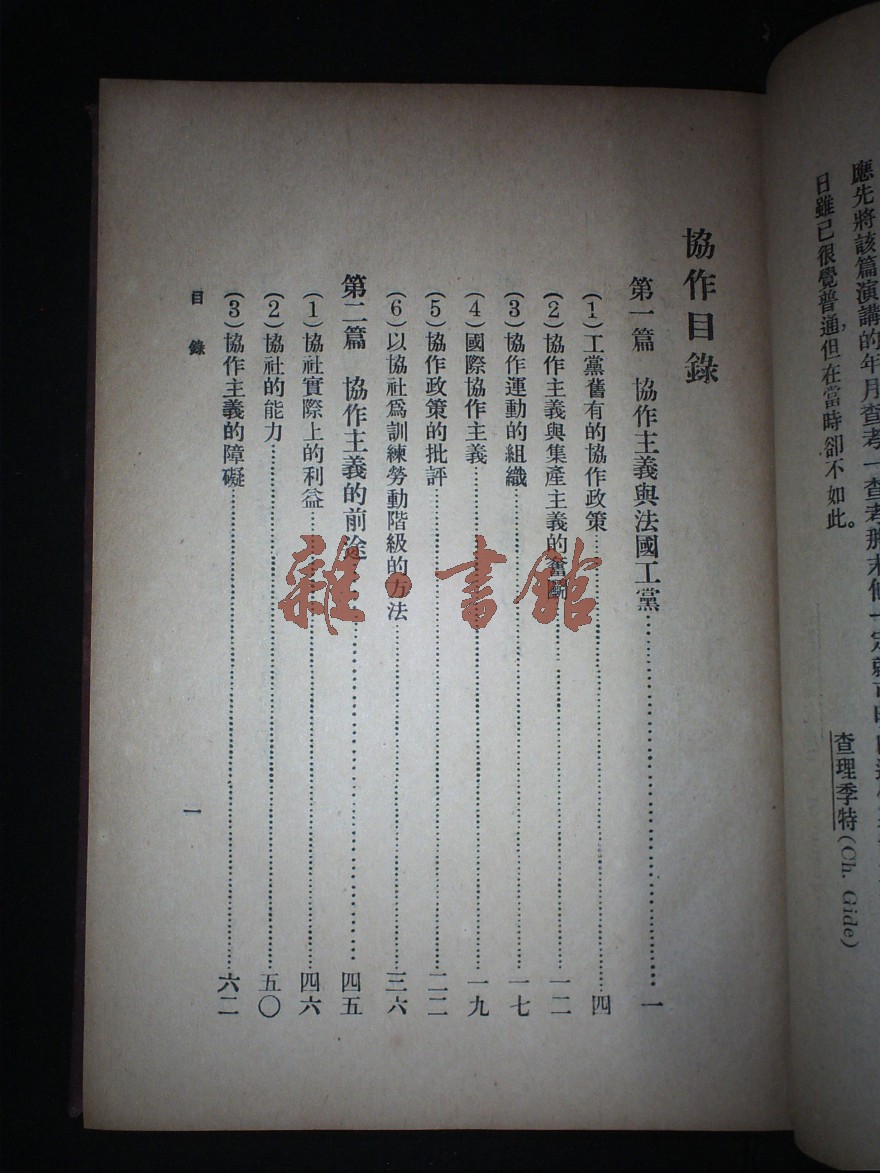 應先將該篇演講的年月查考一查考
日雖已很覺普通,但在當時卻不如此。
查理季特(Ch. Gide)
協作目錄
第一篇 協作主義與法國工黨……一
(1)工黨舊有的協作政策……四
(2)協作主義與集產主義的奮鬥……一二
(3)協作運動的組織……一七
(4)國際協作主義……一九
(5)協作政策的批評……二二
(6)以協社爲訓練勞動階級的方法……三六
第二篇 協作主義的前途……四五
(1)協社實際上的利益……四六
(2)協社的能力……五〇
(3)協作主義的障礙……六二
目錄
一
雜·書館